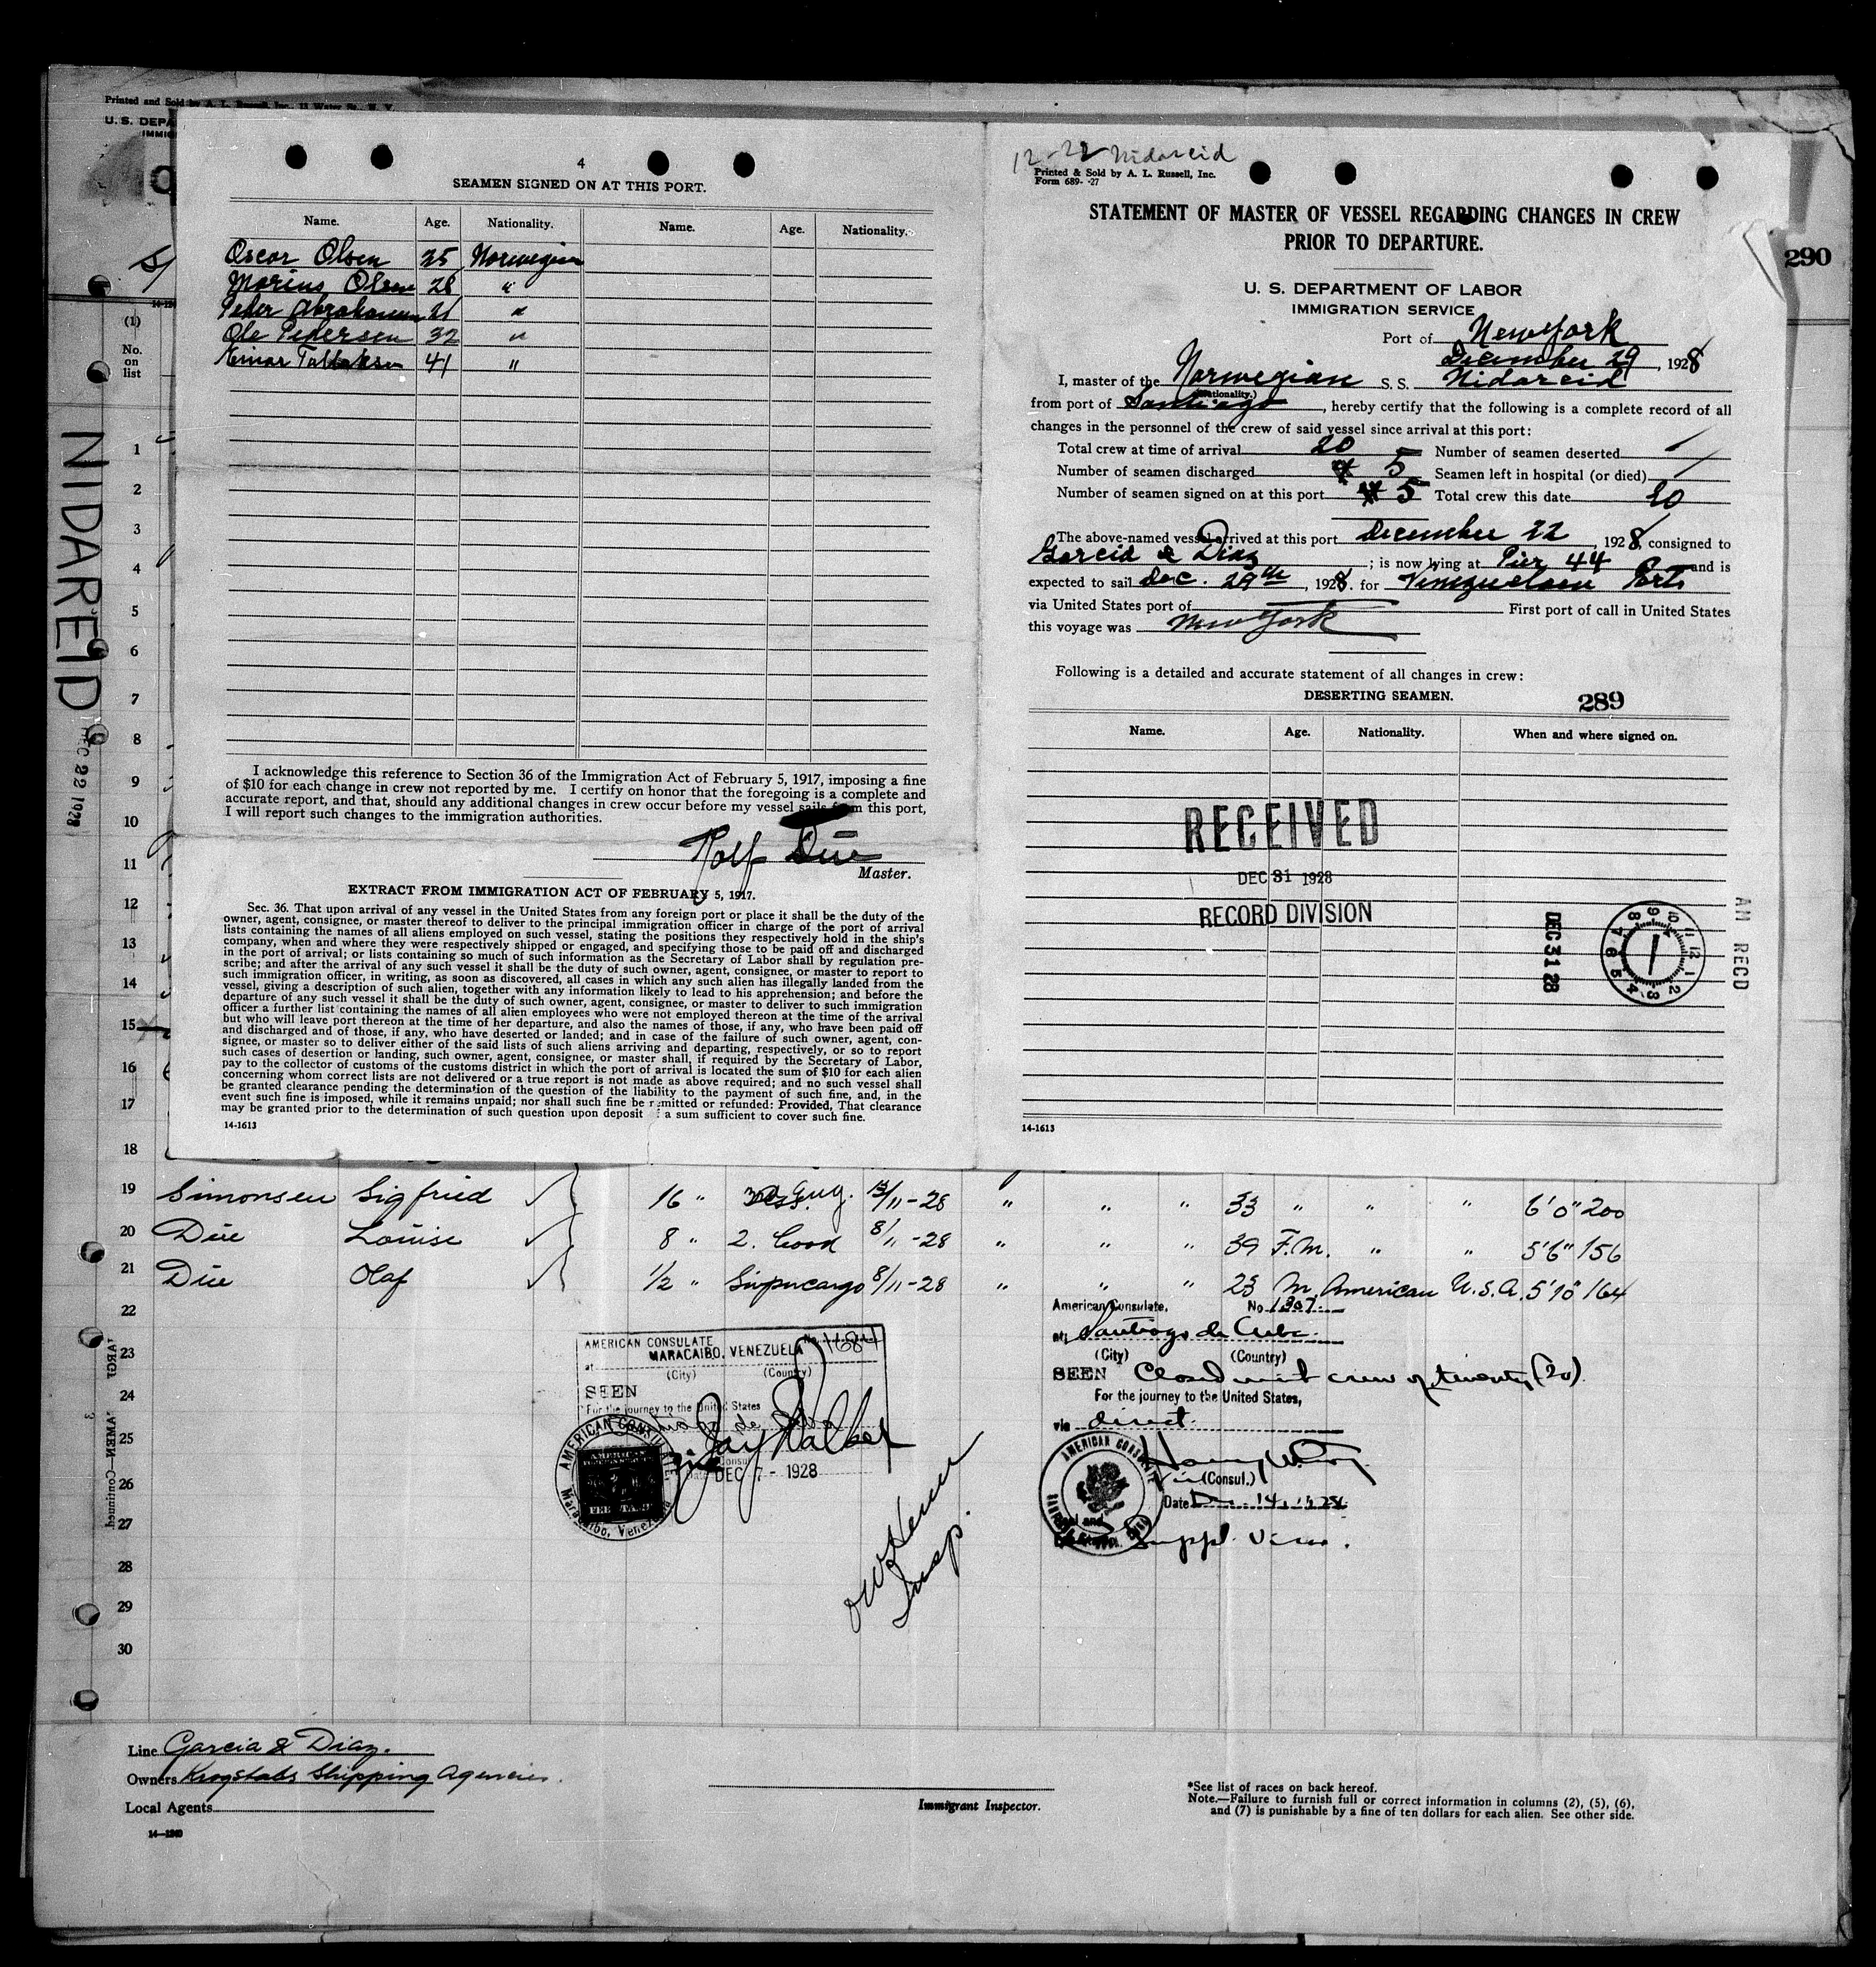 Printed and Sold by A. L. Russell, Inc., 11 Water St., N. Y.
U. S. DEPA
IMMIG
290
(1)
No.
on
list
NIDAREID
DEC 22 1928
4
SEAMEN SIGNED ON AT THIS PORT.
Name. Age. Nationality. Name. Age. Nationality.
Oscar Olsen 25 Norwegian
Marius Olsen 28 "
Peder Abrahamsen 21 "
Ole Pedersen 32 "
Einar 41 "
I acknowledge this reference to Section 36 of the Immigration Act of February 5, 1917, imposing a fine
of $10 for each change in crew not reported by me. I certify on honor that the foregoing is a complete and
accurate report, and that, should any additional changes in crew occur before my vessel sails from this port,
I will report such changes to the immigration authorities.
Rolf Düe
Master.
EXTRACT FROM IMMIGRATION ACT OF FEBRUARY 5, 1917.
Sec. 36. That upon arrival of any vessel in the United States from any foreign port or place it shall be the duty of the
owner, agent, consignee, or master thereof to deliver to the principal immigration officer in charge of the port of arrival
lists containing the names of all aliens employed on such vessel, stating the positions they respectively hold in the ship's
company, when and where they were respectively shipped or engaged, and specifying those to be paid off and discharged
in the port of arrival; or lists containing so much of such information as the Secretary of Labor shall by regulation pre-
scribe; and after the arrival of any such vessel it shall be the duty of such owner, agent, consignee, or master to report to
such immigration officer, in writing, as soon as discovered, all cases in which any such alien has illegally landed from the
vessel, giving a description of such alien, together with any information likely to lead to his apprehension; and before the
departure of any such vessel it shall be the duty of such owner, agent, consignee, or master to deliver to such immigration
officer a further list containing the names of all alien employees who were not employed thereon at the time of the arrival
but who will leave port thereon at the time of her departure, and also the names of those, if any, who have been paid off
and discharged and of those, if any, who have deserted or landed; and in case of the failure of such owner, agent, con-
signee, or master so to deliver either of the said lists of such aliens arriving and departing, respectively, or so to report
such cases of desertion or landing, such owner, agent, consignee, or master shall, if required by the Secretary of Labor,
pay to the collector of customs of the customs district in which the port of arrival is located the sum of $10 for each alien
concerning whom correct lists are not delivered or a true report is not made as above required; and no such vessel shall
be granted clearance pending the determination of the question of the liability to the payment of such fine, and, in the
event such fine is imposed, while it remains unpaid; nor shall such fine be remitted or refunded: Provided, That clearance
may be granted prior to the determination of such question upon deposit of a sum sufficient to cover such fine.
14-1613
12-22 Nidareid
Printed & Sold by A. L. Russell, Inc.
Form 689- -27
STATEMENT OF MASTER OF VESSEL REGARDING CHANGES IN CREW
PRIOR TO DEPARTURE.
U. S. DEPARTMENT OF LABOR
IMMIGRATION SERVICE
Port of New York
December 29, 1928
I, master of the Norwegian S. S. Nidareid
(Nationality.)
from port of Santiago, hereby certify that the following is a complete record of all
changes in the personnel of the crew of said vessel since arrival at this port:
Total crew at time of arrival 20 Number of seamen deserted /
Number of seamen discharged 5 Seamen left in hospital (or died) /
Number of seamen signed on at this port 5 Total crew this date 20
The above-named vessel arrived at this port December 22, 1928, consigned to
Garcia & Diaz; is now lying at Pier 44 and is
expected to sail Dec. 29th, 1928. for Venezuelan Ports
via United States port of First port of call in United States
this voyage was New York
Following is a detailed and accurate statement of all changes in crew:
DESERTING SEAMEN.
289
Name. Age. Nationality. When and where signed on.
RECEIVED
DEC 31 1928
RECORD DIVISION
DEC 31 28
AM RECD
14-1613
1
2
3
4
5
6
7
8
9
10
11
12
13
14
15
16
17
18
19 Simonsen Sigfried 16 " 3rd Eng. 13/11-28 " " " 33 " " " 6'0" 200
20 Düe Louise 8 " 2. Cook 8/11-28 " " " 39 F.M. " " 5'6" 156
21 Düe Olaf 1/2 " Supercargo 8/11-28 " " " 23 M. American U.S.A. 5'10" 164
22
23
24
25
26
27
28
29
30
AMERICAN CONSULATE No. 1684
at MARACAIBO, VENEZUELA
(City) (Country)
SEEN
For the journey to the United States
Jay Walker
Consul
Date DEC 7 - 1928
AMERICAN CONSULATE
Maracaibo, Venezuela
Insp.
American Consulate, No. 1307
at Santiago de Cuba
(City) (Country)
SEEN Closed with crew of twenty (20).
For the journey to the United States,
via direct.
Vice (Consul.)
Date Dec. 14, 1928
Suppl. Visa.
AMERICAN CONSULATE
Line Garcia & Diaz.
Owners Krogstads Shipping Agencies.
Local Agents
14—1240
Immigrant Inspector.
*See list of races on back hereof.
Note.—Failure to furnish full or correct information in columns (2), (5), (6),
and (7) is punishable by a fine of ten dollars for each alien. See other side.